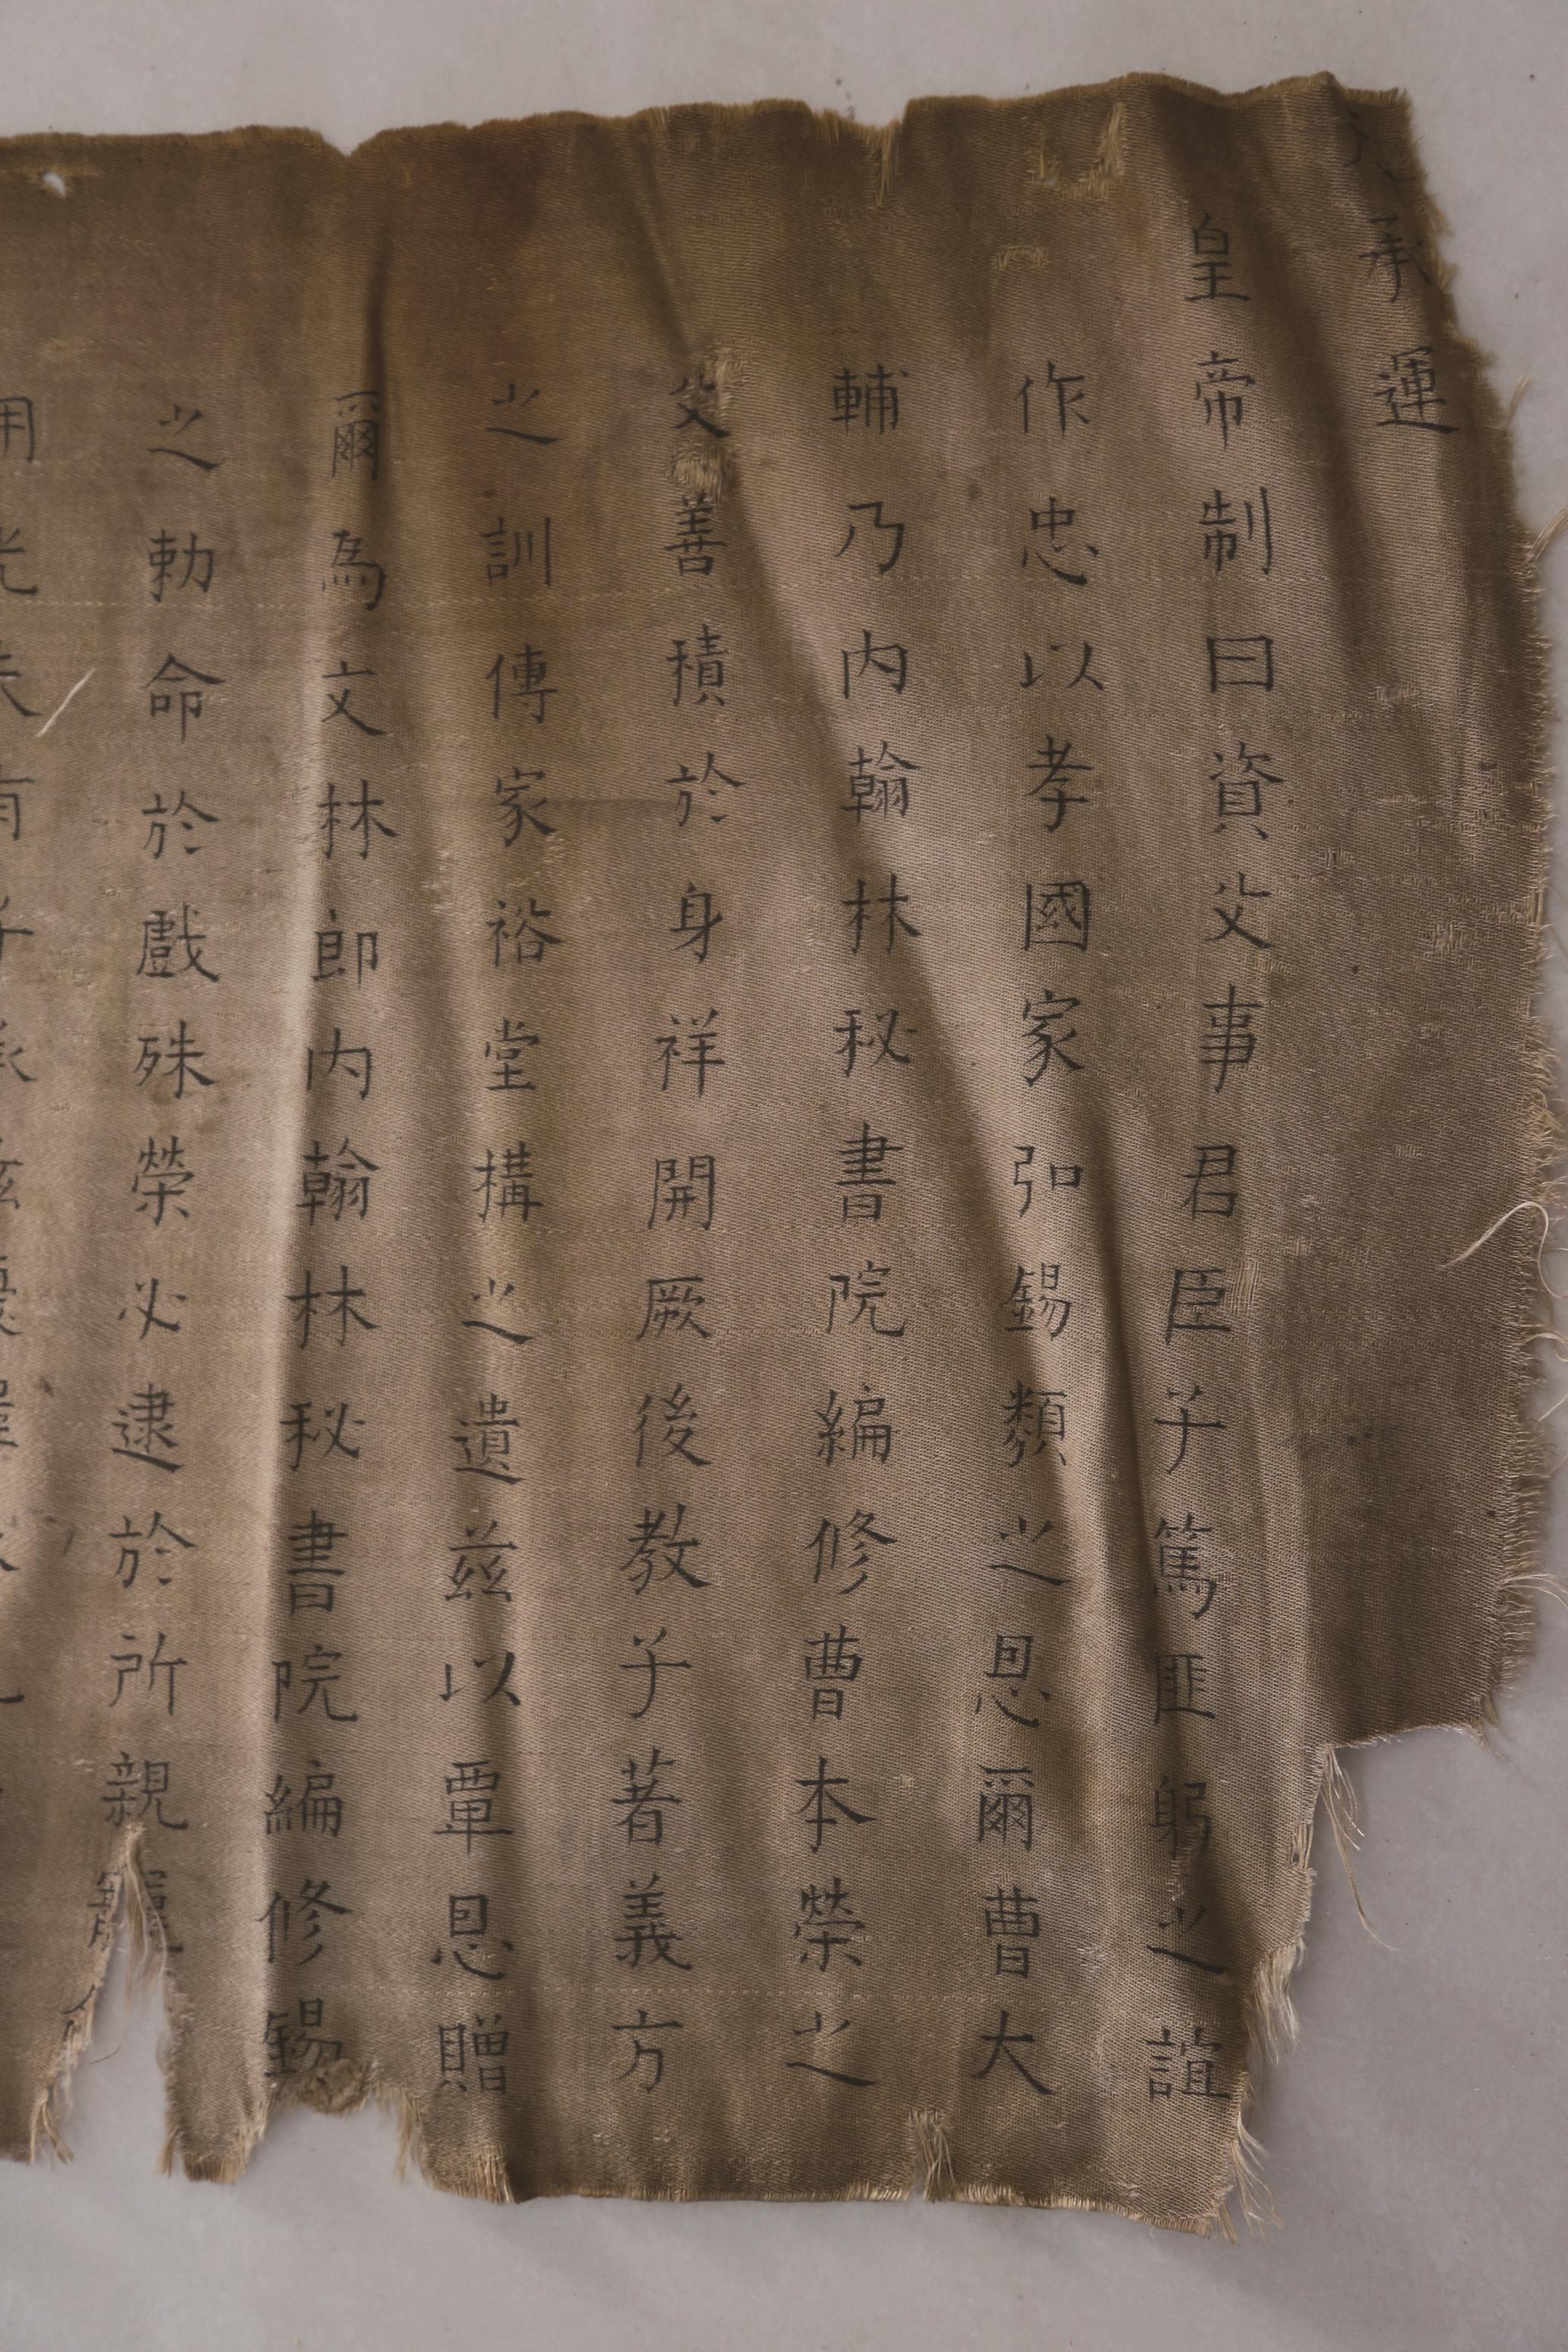 承運
皇帝制曰資父事君臣子篤匪躬之誼
作忠以孝國家弘錫類之恩爾曹大
輔乃内翰林秘書院編修曹本榮之
父善積於身祥開厥後教子著義方
之訓傳家裕堂構之遺兹以覃恩贈
爾為文林郎内翰林秘書院編修錫
之勅命於戲殊榮必逮於所親寵